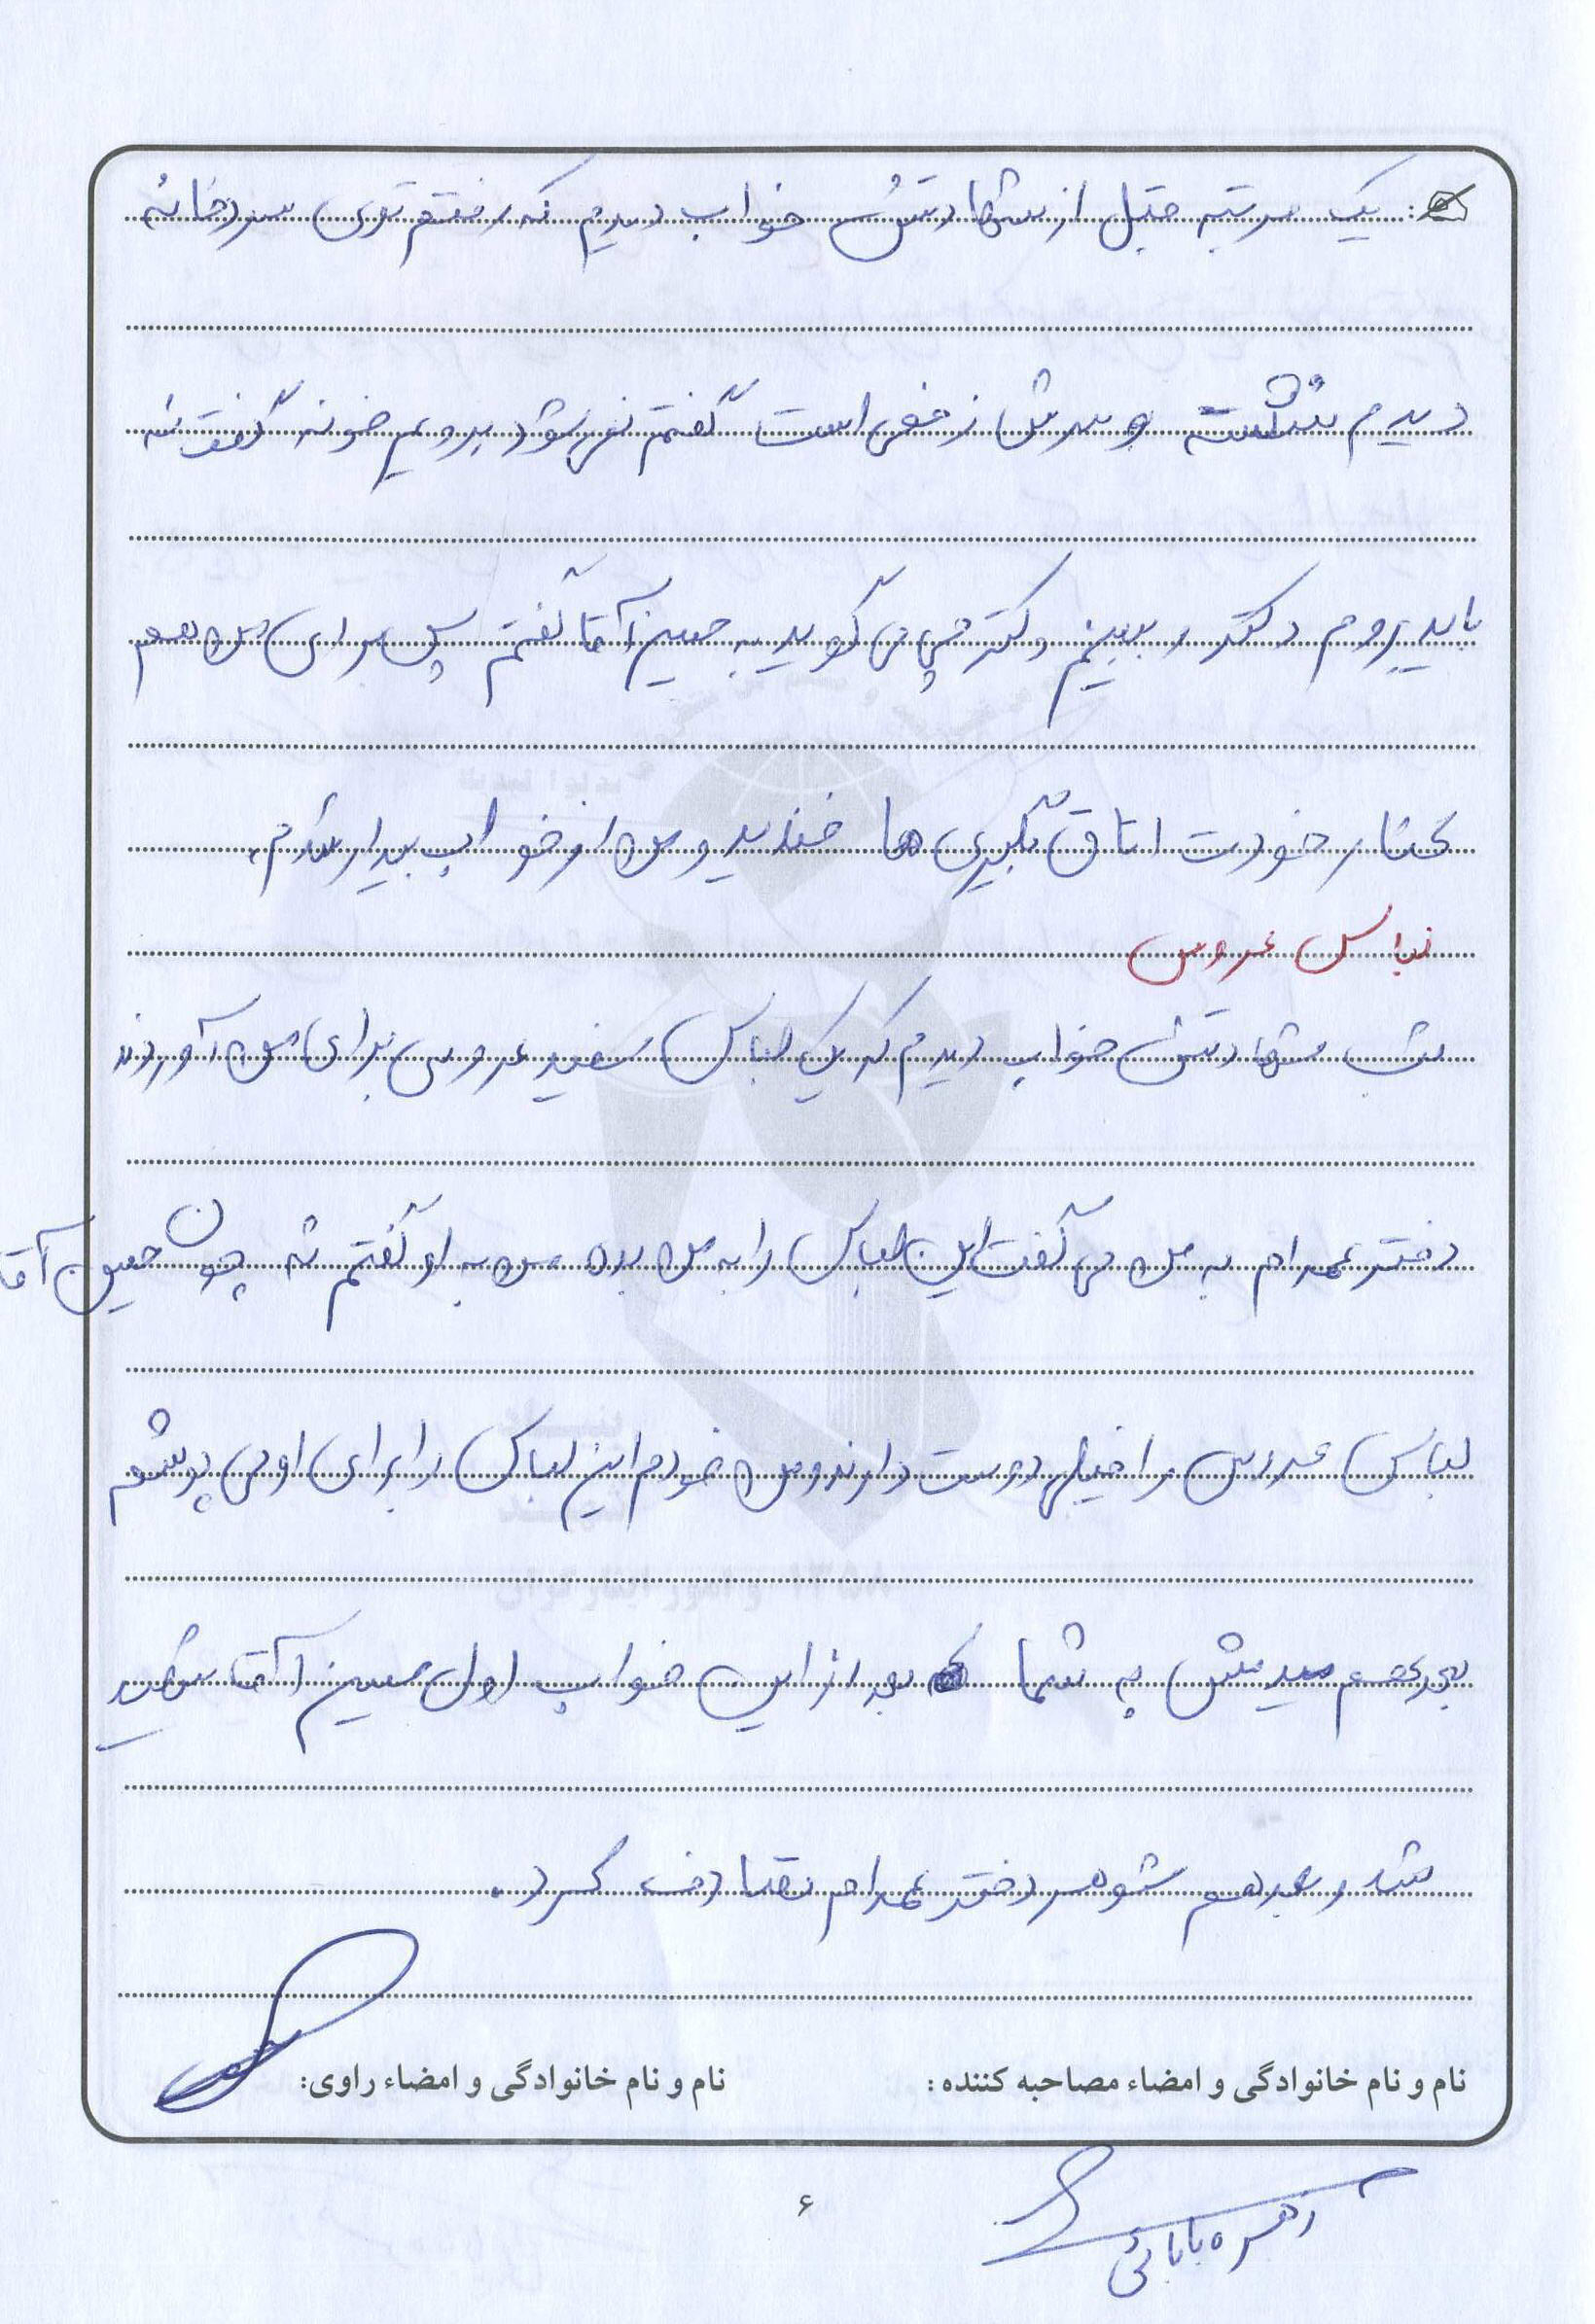 یک مرتبه قبل از شهادتش خواب دیدم که رفتم توی سردخانه
دیدم نشسته و سرش زخمی است گفتم نمی شود برویم خونه گفت نه
باید بروم دکتر ببینم دکتر چی می گوید به حسین آقا گفتم پس برای من هم
کنار خودت اتاق بگیری ها خندید و من از خواب بیدار شدم.
لباس عروس
شب شهادتش خواب دیدم که یک لباس سفید عروس برای من آوردند
دختر عمه ام به من می گفت این لباس را به من بده من به او گفتم نه چون حسین آقا
لباس عروس را خیلی دوست دارند و من خودم این لباس را برای او می پوشم
بعد هم میدمش به شما بعد از این خواب اول حسین آقا شهید
شد و بعد هم شوهر دختر عمه ام تصادف کرد.
نام و نام خانوادگی و امضاء مصاحبه کننده :
نام و نام خانوادگی و امضاء راوی:
زهره بابائی
۶